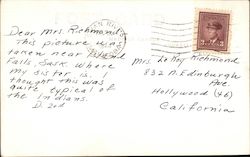 Dear Mrs. Richmond
This picture was
taken near Island
Falls, Sask where
my sister is. I
thought this was
quite typical of
the Indians.
D. 2nd
Mrs LeRoy Richmond
832 N. Edinburgh
Ave.
Hollywood (46)
California
3 3